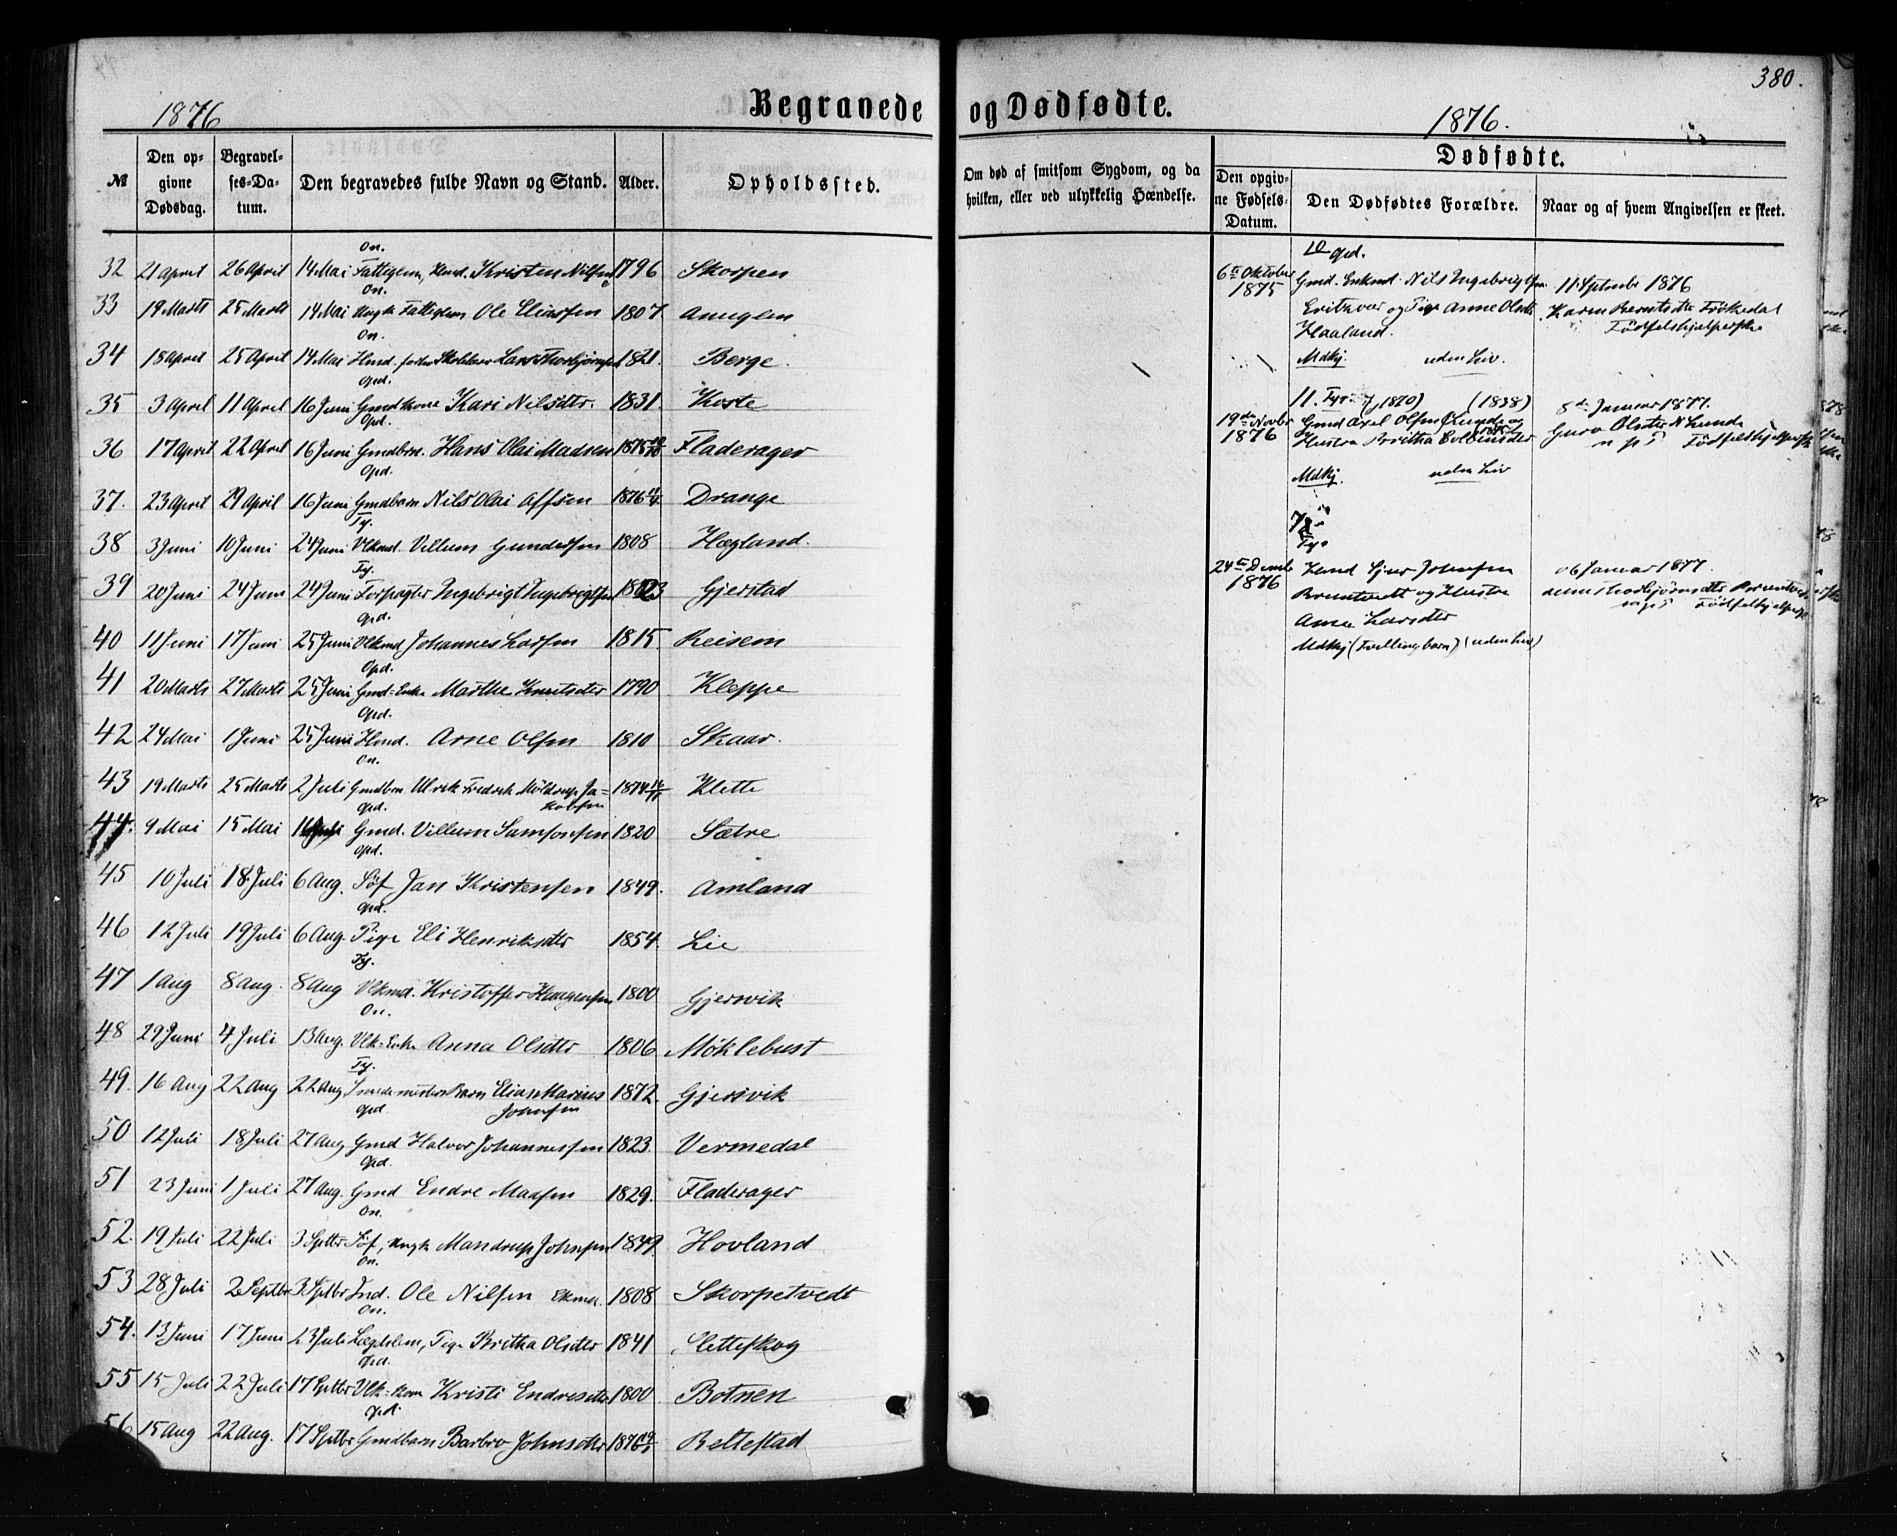 380.
1876
Begravede og Dødfødte.
1876.
Dødfødte.
№ Den opgivne Dødsdag. Begravelses-Datum. Den begravedes fulde Navn og Stand. Alder. Opholdssted.
Om død af smitsom Sygdom, og da hvilken, eller ved ulykkelig Hændelse. Den opgivne Fødsels-Datum. Den Dødfødtes Forældre. Naar og af hvem Angivelsen er skeet.
On.
32 21 April 26 April 14 Mai Fattiglem, Kristen Nilsen 1796 Skorpen
On.
33 19 Marts 25 Marts 14 Mai Ungk Fattiglem Ole Eliassen 1807. Anuglen
On.
34 18 April 25 April 14 Mai Hmd. Lars Thorbjørnsen 1821. Berge.
Opd.
35 3 April 11 April 16 Juni Gmdkone Kari Nilsdtr. 1831. Koste
Opd.
36 17 April 22 April 16 Juni Gmdbrn. Hans Olai Madsen 1875 Fladerager
Opd.
37. 23 April 29 April 16 Juni Gmdbarn Nils Olai 1876 Drange
Ty.
38 3 Juni 10 Juni 24 Juni Vlkmd. Villum Gundersen 1808 Hægland.
Ty.
39 20 Juni 24 Juni 24 Juni Forpagter Ingebrigt Ingebrigtsen Gjerstad
Opd.
40 11 Juni 17 Juni 25 Juni Vlkmd Johannes Larsen 1815. Reisem
Opd.
41 20 Marts 27 Marts 25 Juni Gmd-Enke Marthe Knutsdtr 1790 Kleppe
Opd.
42 24 Mai 1 Juni 25 Juni Hmd. Arne Olsen 1810 Skaar.
On.
43 19 Marts 25 Marts 2 Juli Gmdbrn Ulrik Fredrik Møldrup Ja=
kobsen 1874 Klette
Opd.
44. 9 Mai 15 Mai Juli Gmd. Villum Samsonsen 1820 Sætre
Opd.
45 10 Juli 18. Juli 6 Aug. Søf Jan Kristensen 1849. Amland
Opd.
46 12 Juli 19 Juli 6 Aug. Pige Eli Henriksdtr 1854. Lie
Ty.
47 1 Aug 8 Aug. 8 Aug Vlkmd. Kristoffer Haagensen 1800 Gjersvik
On.
48 29 Juni 4 Juli 13 Aug. Vlk-Enke Anna Olsdtr 1806 Møklebust
Ty.
49. 16 Aug 22 Aug 22 Aug Smedemesters Barn Elias Marius
Johnsen 1872. Gjersvik
Opd
50 12 Juli 18 Juli 27 Aug Gmd Halvor Johannessen 1823. Vermedal
Opd.
51 23 Juni 1 Juli 27 Aug. Gmd Endre Madsen 1829. Fladerager
On.
52. 19 Juli 22 Juli 3 Septbr Søf, Ungk Mandrup Johnsen 1849. Hovland
On.
53 28 Juli 2 Septbr 3 Septbr Ind. Ole Nilsen Ekmd. 1808 Skorpetvedt
On.
54. 13 Juni 17 Juni 23 Juli Lægdslem, Pige Britha Olsdtr 1841 Sletteskog
Opd.
55 15 Juli 22 Juli 17 Septbr Vlk-kone Kristi Endresdtr 1800 Botnen
Opd.
56 15 Aug 22 Aug. 17 Septbr Gmdbarn Barbro Johnsdtr 1876 Rettestad
10 Opd.
6te Oktober 1875 Gmd. Enkmd. Nils Ingebrigtsen 11 Septembr 1876
og Pige Anne Olsdtr Karen Berntsdtr Frøkedal
Haaland. Fødselshjelperske
Mdkj. uden Liv
11. Tys.
19de Novbr 1876 Gmd Axel Olsen Lunde og (1838) 8de Januar 1877.
Hustru Britha Guro Olsdtr N Lunde
Fødselshjelperske
Mdkj. uden Liv
Tys
24de Decemb 1876 Hmd Sjur Johnsen 6 Januar 1877.
Bruntvedt og Hustru Fødselshjelperske
Anna Larsdtr
Mdkj (Tvillingbarn) (uden Liv)